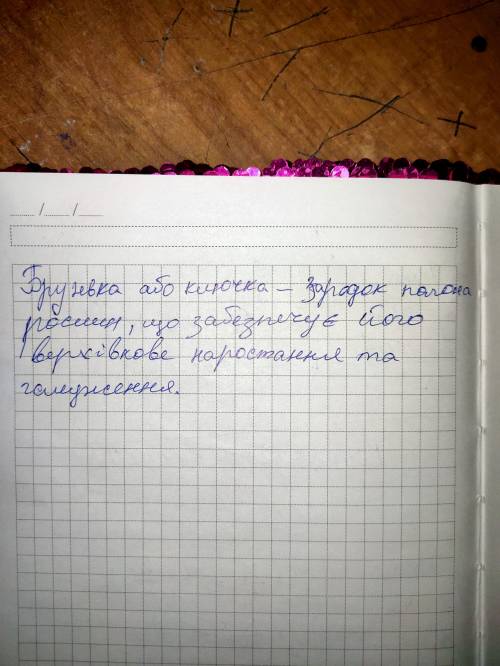 Брунька або ключка – зародок пагона
рослин, що забезпечує його
верхівкове наростання та
галуження.